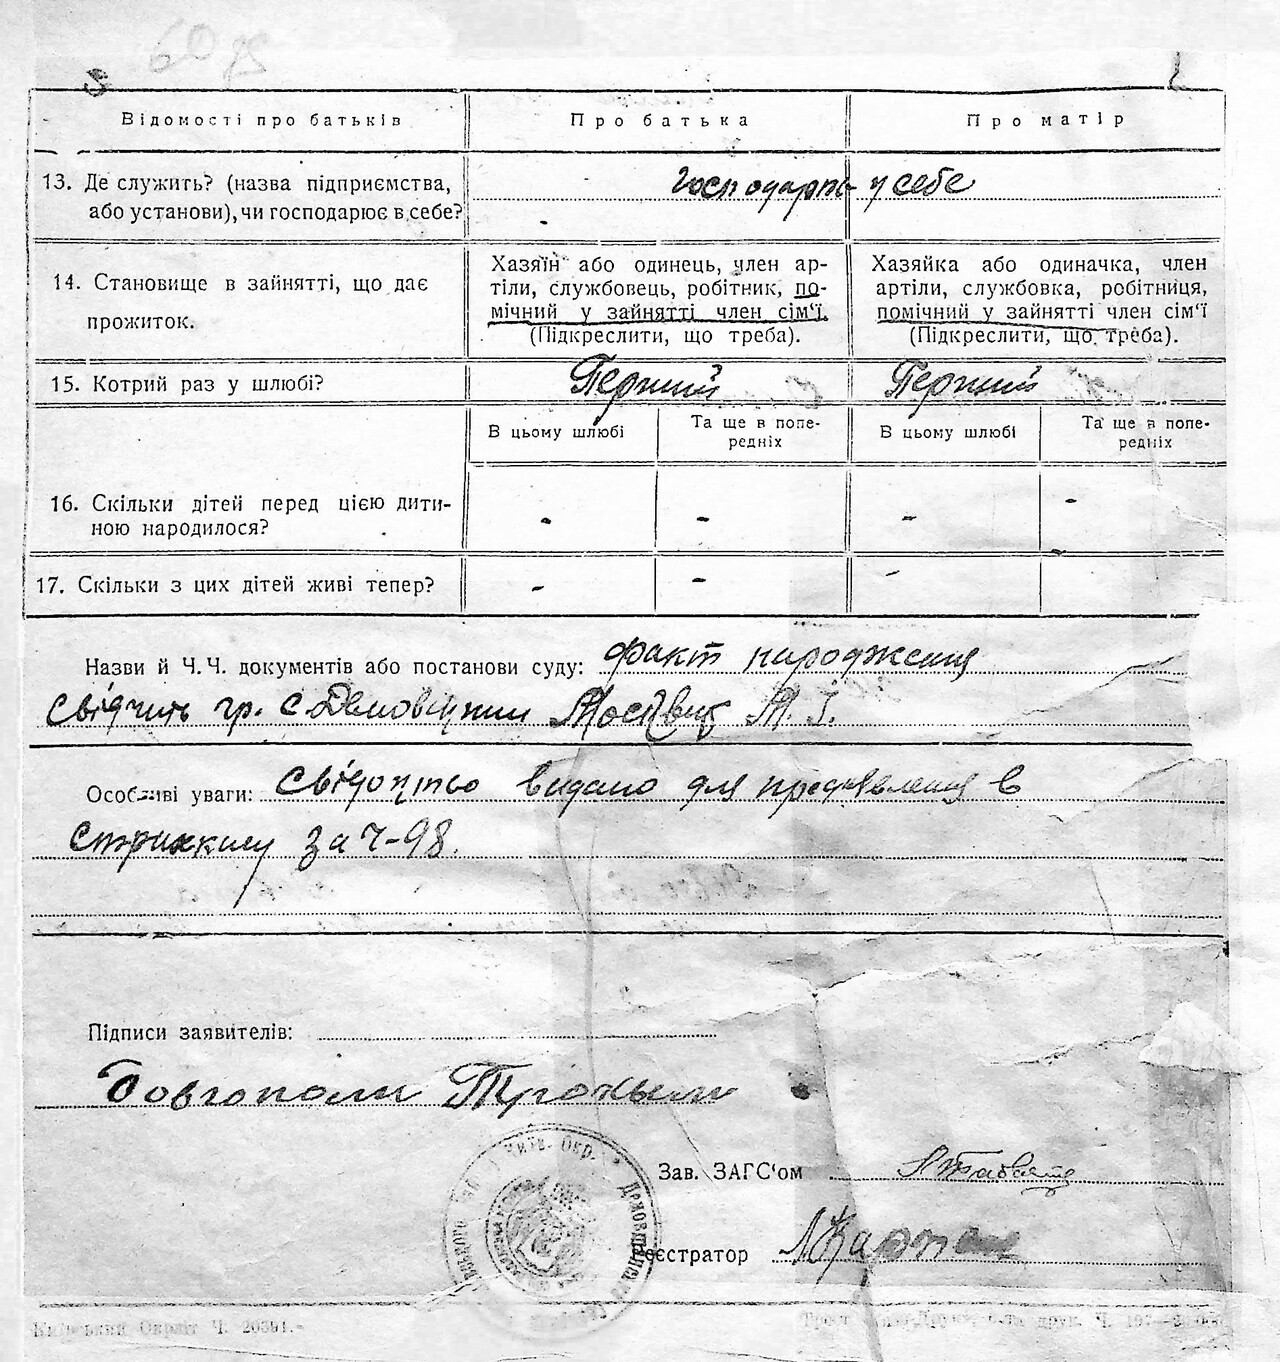 60
Відомості про батьків
Про батька
Про матір
13. Де служить? (назва підприємства,
або установи), чи господарює в себе?
Господарть у себе
14. Становище в зайнятті, що дає
прожиток.
Хазяїн або одинець, член ар-
тіли, службовець, робітник, по-
мічний у зайнятті член сім'ї.
(Підкреслити, що треба).
Хазяйка або одиначка, член
артіли, службовка, робітниця,
помічний у зайнятті член сім'ї
(Підкреслити, що треба).
15. Котрий раз у шлюбі?
Перший
Перший
В цьому шлюбі
Та ще в попе-
редніх
В цьому шлюбі
Та ще в попе-
редніх
16. Скільки дітей перед цією дити-
ною народилося?
- - - -
17. Скільки з цих дітей живі тепер?
- - -
Назви й Ч.Ч. документів або постанови суду: факт народження
свідчить гр. с. Демовщини Москвич М. І.
Особливі уваги: Свідоцтво видано для предявлення в
за Ч-98.
Підписи заявителів:
Довгополи Трохым
Київ. Окр.
Зав. ЗАГС'ом
Реєстратор
Київський Окрліт Ч. 20391.-